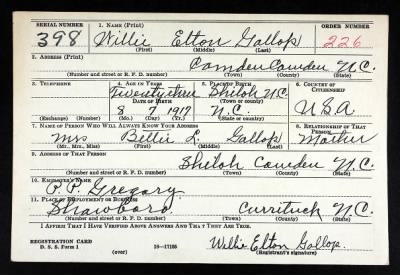 SERIAL NUMBER 1. NAME (Print) ORDER NUMBER
398 Willie Elton Gallop 226
(First) (Middle) (Last)
2. ADDRESS (Print)
Camden Camden N.C.
(Number and street or R. F. D. number) (Town) (County) (State)
3. TELEPHONE 4. AGE IN YEARS 5. PLACE OF BIRTH 6. COUNTRY OF CITIZENSHIP
Twenty three Shiloh N.C.
DATE OF BIRTH (Town or county)
8 7 1917 N.C. U.S.A
(Exchange) (Number) (Mo.) (Day) (Yr.) (State or country)
7. NAME OF PERSON WHO WILL ALWAYS KNOW YOUR ADDRESS 8. RELATIONSHIP OF THAT PERSON
Mrs Bettie L. Gallop Mother
(Mr., Mrs., Miss) (First) (Middle) (Last)
9. ADDRESS OF THAT PERSON
Shiloh Camden N.C.
(Number and street or R. F. D. number) (Town) (County) (State)
10. EMPLOYER'S NAME
P.P. Gregory
11. PLACE OF EMPLOYMENT OR BUSINESS
Shawboro Currituck N.C.
(Number and street or R. F. D. number) (Town) (County) (State)
I AFFIRM THAT I HAVE VERIFIED ABOVE ANSWERS AND THAT THEY ARE TRUE.
REGISTRATION CARD
D. S. S. Form 1 16—17105
(over)
Willie Elton Gallop
(Registrant's signature)